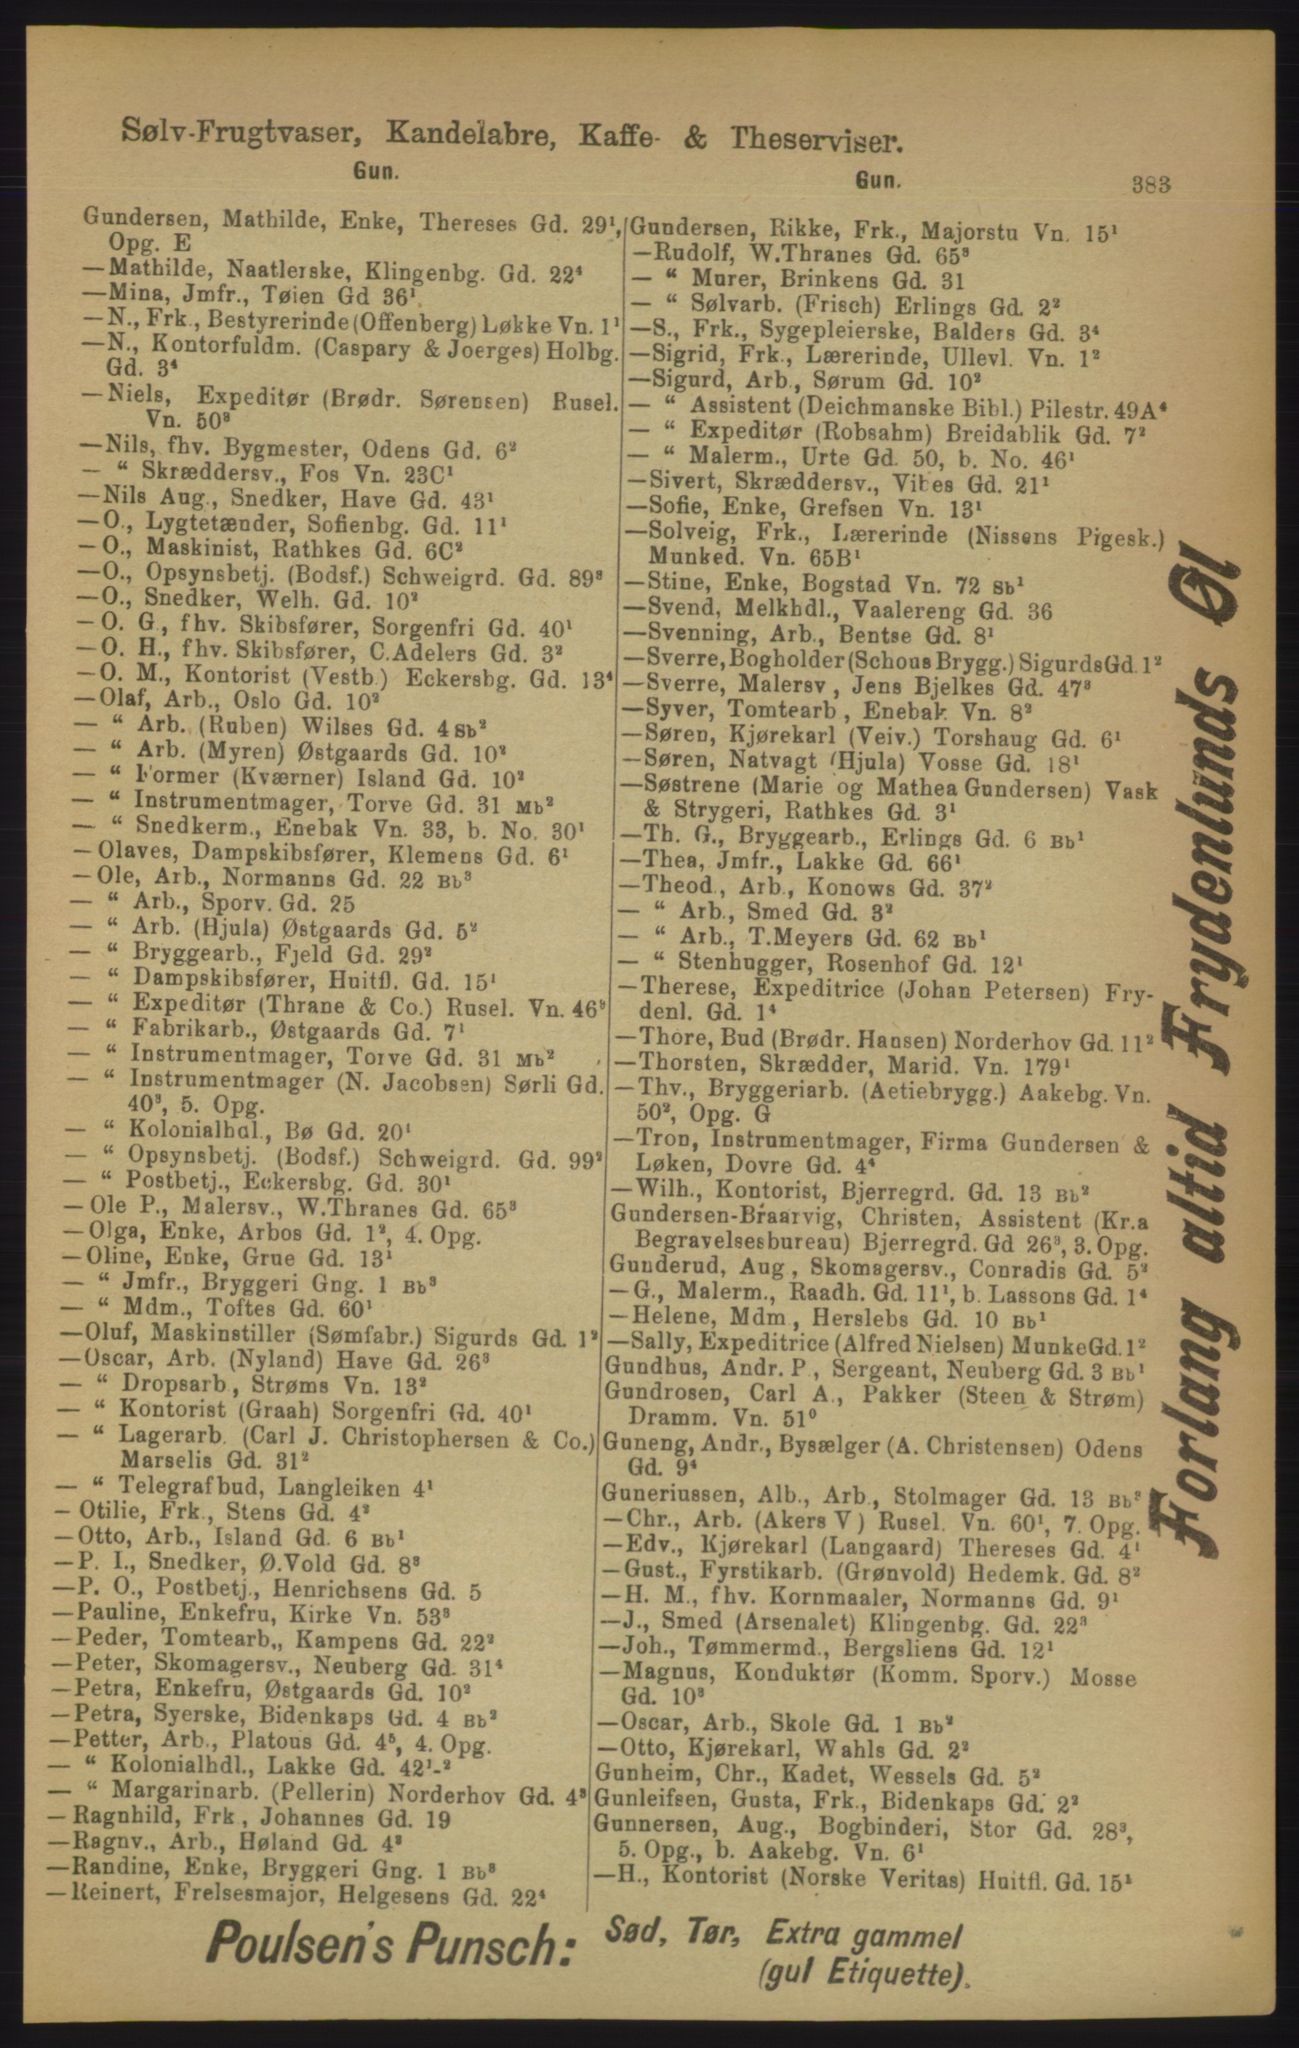 Sølv-Frugtvaser, Kandelabre, Kaffe- & Theserviser.
Gun.
Gun.
383
Gundersen, Mathilde, Enke, Thereses Gd. 29¹,
Opg. E
—Mathilde, Naatlerske, Klingenbg. Gd. 22⁴
—Mina, Jmfr., Tøien Gd 36¹
—N., Frk., Bestyrerinde (Offenberg) Løkke Vn. 1¹
—N., Kontorfuldm. (Caspary & Joerges) Holbg.
Gd. 3⁴
—Niels, Expeditør (Brødr. Sørensen) Rusel.
Vn. 50³
—Nils, fhv. Bygmester, Odens Gd. 6²
— “ Skræddersv., Fos Vn. 23C¹
—Nils Aug., Snedker, Have Gd. 43¹
—O., Lygtetænder, Sofienbg. Gd. 11¹
—O., Maskinist, Rathkes Gd. 6C²
—O., Opsynsbetj. (Bodsf.) Schweigrd. Gd. 89³
—O., Snedker, Welh. Gd. 10²
—O. G., fhv. Skibsfører, Sorgenfri Gd. 40¹
—O. H., fhv. Skibsfører, C.Adelers Gd. 3²
—O. M., Kontorist (Vestb.) Eckersbg. Gd. 13⁴
—Olaf, Arb., Oslo Gd. 10²
— “ Arb. (Ruben) Wilses Gd. 4 Sb²
— “ Arb. (Myren) Østgaards Gd. 10²
— “ Former (Kværner) Island Gd. 10²
— “ Instrumentmager, Torve Gd. 31 Mb²
— “ Snedkerm., Enebak Vn. 33, b. No. 30¹
—Olaves, Dampskibsfører, Klemens Gd. 6¹
—Ole, Arb., Normanns Gd. 22 Bb³
— “ Arb., Sporv. Gd. 25
— “ Arb. (Hjula) Østgaards Gd. 5²
— “ Bryggearb., Fjeld Gd. 29²
— “ Dampskibsfører, Huitfl. Gd. 15¹
— “ Expeditør (Thrane & Co.) Rusel. Vn. 46³
— “ Fabrikarb., Østgaards Gd. 7¹
— “ Instrumentmager, Torve Gd. 31 Mb²
— “ Instrumentmager (N. Jacobsen) Sørli Gd.
40³, 5. Opg.
— “ Kolonialhdl., Bø Gd. 20¹
— “ Opsynsbetj. (Bodsf.) Schweigrd. Gd. 99²
— “ Postbetj., Eckersbg. Gd. 30¹
—Ole P., Malersv., W.Thranes Gd. 65³
—Olga, Enke, Arbos Gd. 1², 4. Opg.
—Oline, Enke, Grue Gd. 13¹
— “ Jmfr., Bryggeri Gng. 1 Bb³
— “ Mdm., Toftes Gd. 60¹
—Oluf, Maskinstiller (Sømfabr.) Sigurds Gd. 1²
—Oscar, Arb. (Nyland) Have Gd. 26³
— “ Dropsarb, Strøms Vn. 13²
— “ Kontorist (Graah) Sorgenfri Gd. 40¹
— “ Lagerarb. (Carl J. Christophersen & Co.)
Marselis Gd. 31²
— “ Telegrafbud, Langleiken 4¹
— Otilie, Frk., Stens Gd. 4²
—Otto, Arb., Island Gd. 6 Bb¹
—P. I., Snedker, Ø.Vold Gd. 8³
—P. O., Postbetj., Henrichsens Gd. 5
—Pauline, Enkefru, Kirke Vn. 53³
—Peder, Tomtearb., Kampens Gd. 22²
—Peter, Skomagersv., Neuberg Gd. 31⁴
—Petra, Enkefru, Østgaards Gd. 10²
—Petra, Syerske, Bidenkaps Gd. 4 Bb²
—Petter, Arb., Platous Gd. 4⁵, 4. Opg.
— “ Kolonialhdl., Lakke Gd. 42¹-²
— “ Margarinarb. (Pellerin) Norderhov Gd. 4³
—Ragnhild, Frk, Johannes Gd. 19
—Ragnv., Arb., Høland Gd. 4³
—Randine, Enke, Bryggeri Gng. 1 Bb³
—Reinert, Frelsesmajor, Helgesens Gd. 22⁴
Gundersen, Rikke, Frk., Majorstu Vn. 15¹
—Rudolf, W.Thranes Gd. 65³
— “ Murer, Brinkens Gd. 31
— “ Sølvarb. (Frisch) Erlings Gd. 2²
—S., Frk., Sygepleierske, Balders Gd. 3⁴
—Sigrid, Frk., Lærerinde, Ullevl. Vn. 1²
—Sigurd, Arb., Sørum Gd. 10²
— “ Assistent (Deichmanske Bibl.) Pilestr. 49A⁴
— “ Expeditør (Robsahm) Breidablik Gd. 7²
— “ Malerm., Urte Gd. 50, b. No. 46¹
—Sivert, Skræddersv., Vibes Gd. 21¹
—Sofie, Enke, Grefsen Vn. 13¹
—Solveig, Frk., Lærerinde (Nissens Pigesk.)
Munked. Vn. 65B¹
—Stine, Enke, Bogstad Vn. 72 Sb¹
—Svend, Melkhdl., Vaalereng Gd. 36
—Svenning, Arb., Bentse Gd. 8¹
—Sverre, Bogholder (Schous Brygg.) Sigurds Gd. 1²
—Sverre, Malersv, Jens Bjelkes Gd. 47³
—Syver, Tomtearb, Enebak Vn. 8²
—Søren, Kjørekarl (Veiv.) Torshaug Gd. 6¹
—Søren, Natvagt (Hjula) Vosse Gd. 18¹
—Søstrene (Marie og Mathea Gundersen) Vask
& Strygeri, Rathkes Gd. 3¹
—Th. G., Bryggearb., Erlings Gd. 6 Bb¹
—Thea, Jmfr., Lakke Gd. 66¹
—Theod., Arb., Konows Gd. 37²
— “ Arb., Smed Gd. 3²
— “ Arb., T.Meyers Gd. 62 Bb¹
— “ Stenhugger, Rosenhof Gd. 12¹
—Therese, Expeditrice (Johan Petersen) Fry-
denl. Gd. 1⁴
—Thore, Bud (Brødr. Hansen) Norderhov Gd. 11²
—Thorsten, Skrædder, Marid. Vn. 179¹
—Thv., Bryggeriarb. (Aetiebrygg.) Aakebg. Vn.
50², Opg. G
—Tron, Instrumentmager, Firma Gundersen &
Løken, Dovre Gd. 4⁴
—Wilh., Kontorist, Bjerregrd. Gd. 13 Bb²
Gundersen-Braarvig, Christen, Assistent (Kr.a
Begravelsesbureau) Bjerregrd. Gd 26³, 3. Opg.
Gunderud, Aug, Skomagersv., Conradis Gd. 5²
—G., Malerm., Raadh. Gd. 11¹, b. Lassons Gd. 1⁴
—Helene, Mdm, Herslebs Gd. 10 Bb¹
—Sally, Expeditrice (Alfred Nielsen) Munke Gd. 1²
Gundhus, Andr. P, Sergeant, Neuberg Gd. 3 Bb¹
Gundrosen, Carl A., Pakker (Steen & Strøm)
Dramm. Vn. 51⁰
Guneng, Andr., Bysælger (A. Christensen) Odens
Gd. 9⁴
Guneriussen, Alb., Arb., Stolmager Gd. 13 Bb²
—Chr., Arb. (Akers V) Rusel. Vn. 60¹, 7. Opg.
—Edv., Kjørekarl (Langaard) Thereses Gd. 4¹
—Gust., Fyrstikarb. (Grønvold) Hedemk. Gd. 8²
—H. M., fhv. Kornmaaler, Normanns Gd. 9¹
—J., Smed (Arsenalet) Klingenbg. Gd. 22³
—Joh., Tømmermd., Bergsliens Gd. 12¹
—Magnus, Konduktør (Komm. Sporv.) Mosse
Gd. 10³
—Oscar, Arb., Skole Gd. 1 Bb²
—Otto, Kjørekarl, Wahls Gd. 2²
Gunheim, Chr., Kadet, Wessels Gd. 5²
Gunleifsen, Gusta, Frk., Bidenkaps Gd. 2²
Gunnersen, Aug., Bogbinderi, Stor Gd. 28³,
5. Opg., b. Aakebg. Vn. 6¹
—H., Kontorist (Norske Veritas) Huitfl. Gd. 15¹
Forlang altid Frydenlunds Øl
Poulsen's Punsch: Sød, Tør, Extra gammel
(gul Etiquette).